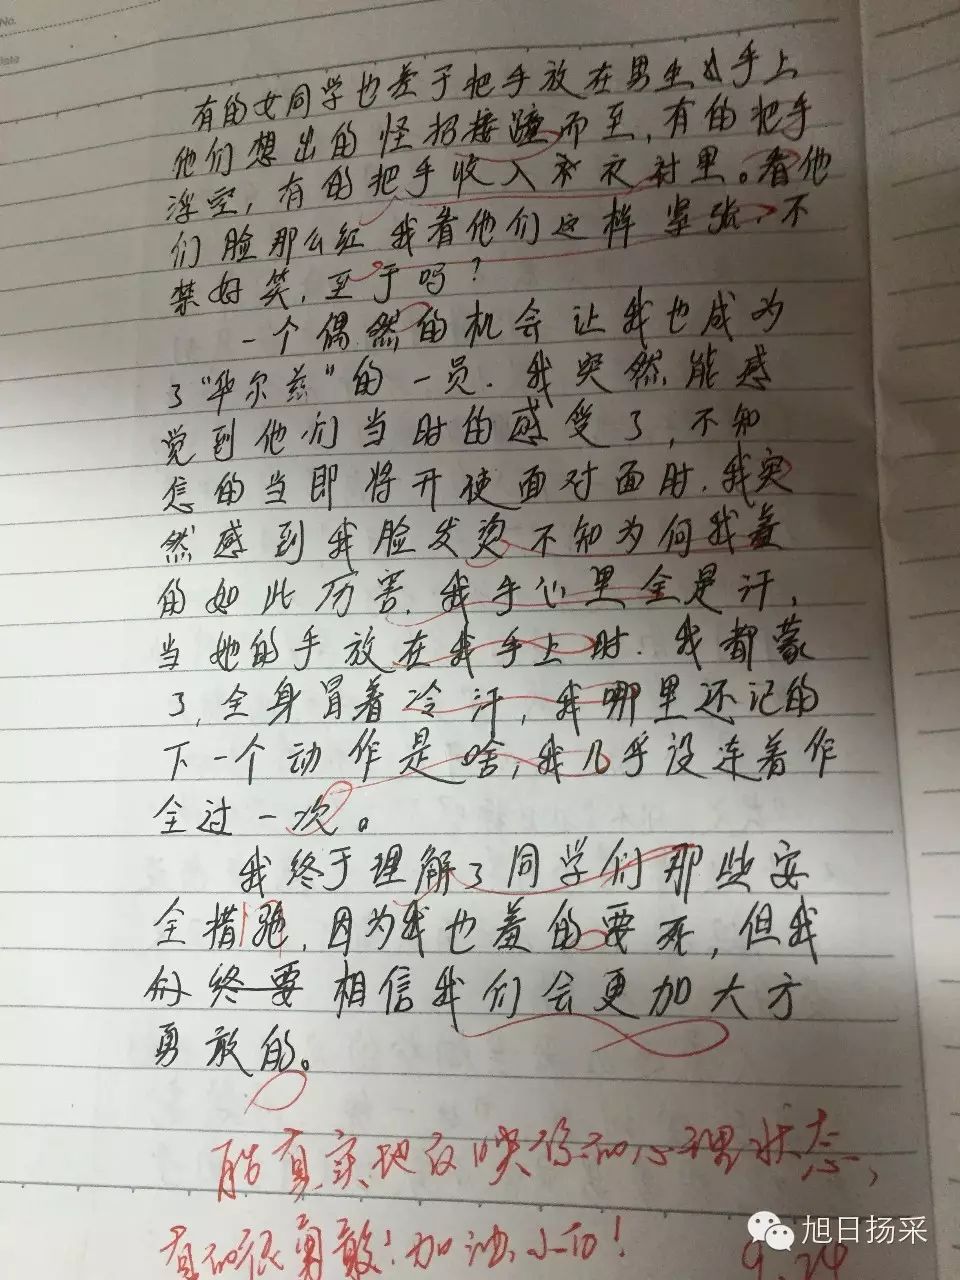 No.
Date
有的女同学也差于把手放在男生的手上
他们想出的怪招接踵而至，有的把手
浮空，有的把手收入衣衬里。看他
们脸那么红我看他们这样紧张，不
禁好笑，至于吗？
一个偶然的机会让我也成为
了“华尔兹”的一员．我突然能感
觉到他们当时的感受了，不知
怎的当即将开使面对面时．我突
然感到我脸发烫不知为何我羞
的如此厉害．我手心里全是汗，
当她的手放在我手上时．我都蒙
了，全身冒着冷汗，我哪里还记的
下一个动作是啥，我几乎没连着作
全过一次。
我终于理解了同学们那些安
全措施，因为我也羞的要死，但我
相信我们会更加大方
勇敢的。
能真实地反映你的心理状态，
真的很勇敢！加油
9.24
旭日扬采